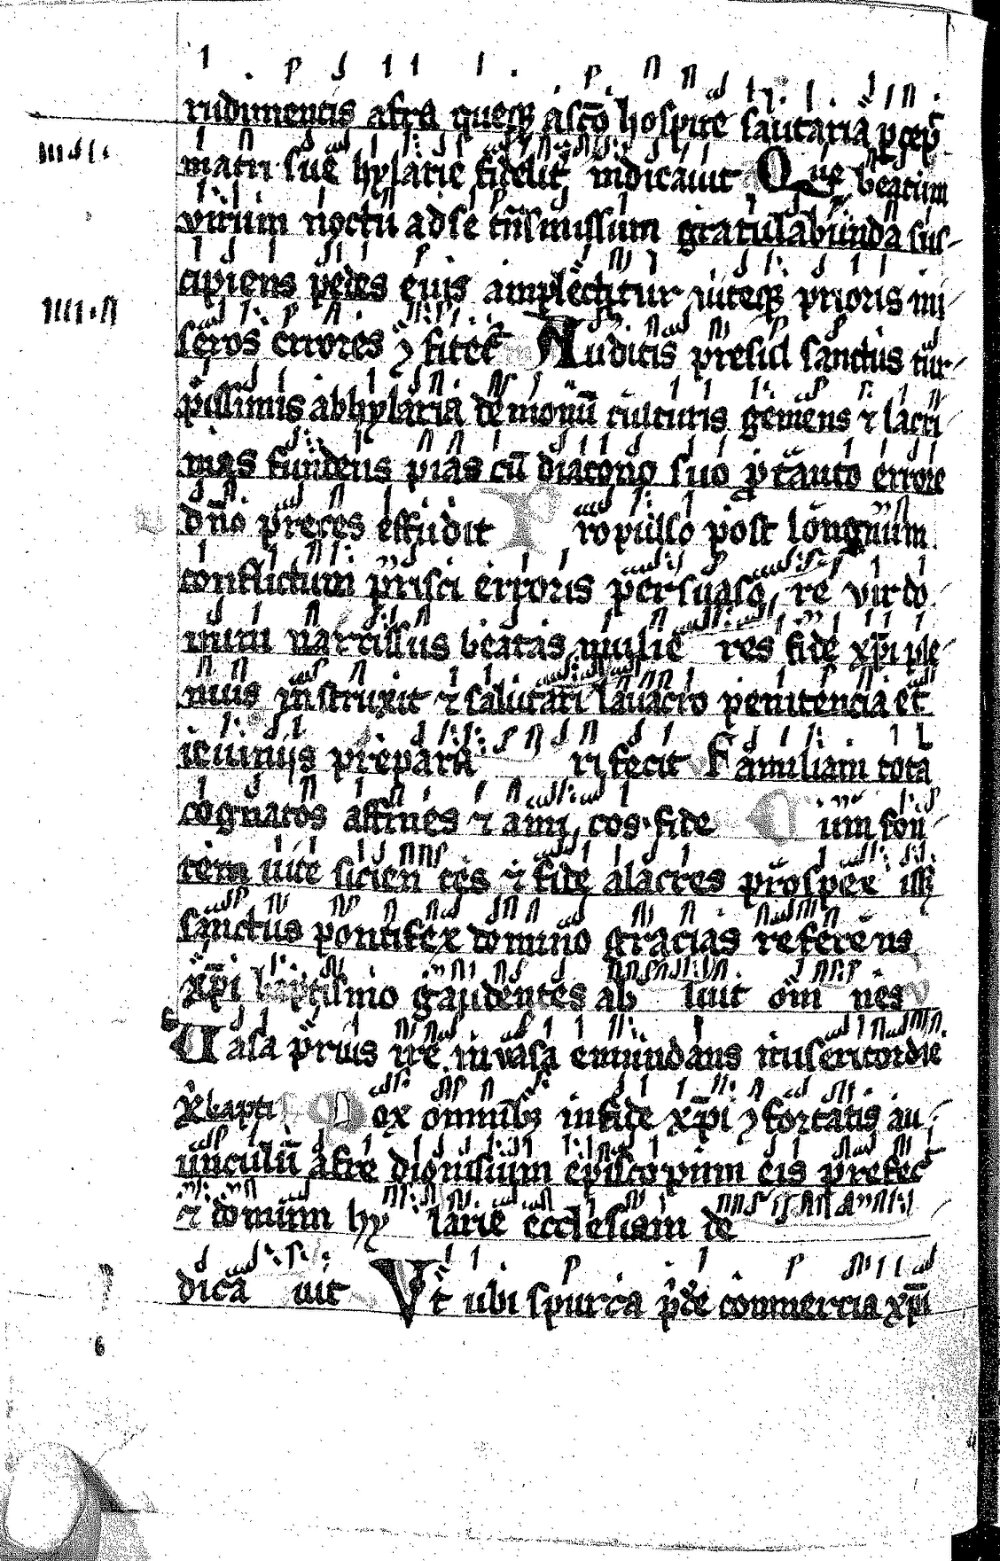 rudimentis afra queq; a scō hospite salutaria p̄cep̄
matri sue hylarie fideliť indicauit Que beatum
virum noctu ad se tn̄smissum gratulabunda sus-
cipiens pedes eius amplectitur uiteq; prioris mi-
seros errores ꝯfitet᷑ Auditis presul sanctus tur-
pissimis ab hylaria demonū culturis gemens ⁊ lacri
mas fundens pias cū diacono suo p̱ tanto errore
dn̄o preces effudit Propulso post longuum
conflictum prisci erroris persuaso re vir do
mini narcissus beatas mulie res fide xp̄i ple
nius instruxit ⁊ salutari lauacro penitencia et
ieiuniis prepara ri fecit Familiam tota
cognatos affines ⁊ ami cos fide Cum fon
tem uite sicien tes ⁊ fide alacres prospex iss;
sanctus pontifex domino gracias referens
xp̄i baptismo gaudentes ab luit om nes
Uasa prius ire in vasa emundans misericordie
xp̄ bapti Nox omnib; in fide xp̄i ꝯfortatis au-
unculū afre dionisium episcopum eis prefec̄
⁊ domum hy larie ecclesiam de
dica uit Vt ubi spurca p̄de commercia xp̄i
6